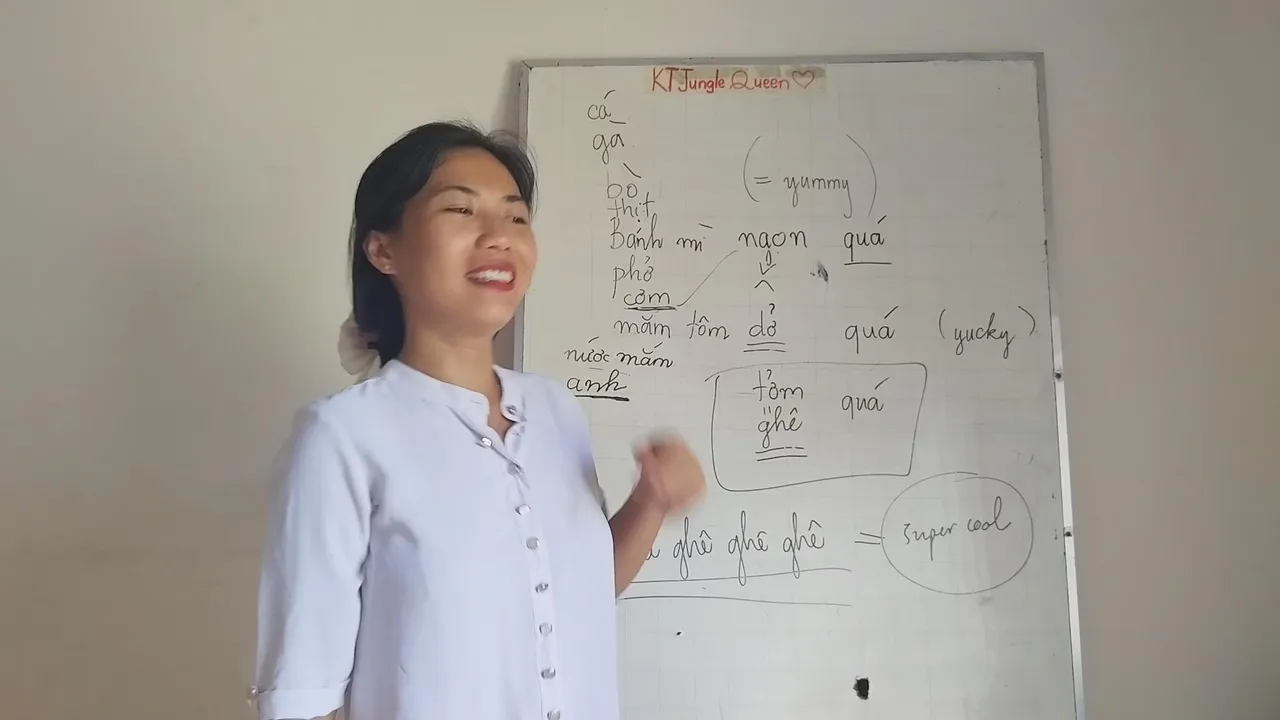 KT Jungle Queen♡
cá
gà
bò
thịt
(= yummy)
Bánh mì ngon quá
phở
cơm
mắm tôm dở quá (yucky)
nước mắm
anh
tởm quá
ghê
ghê ghê ghê = super cool